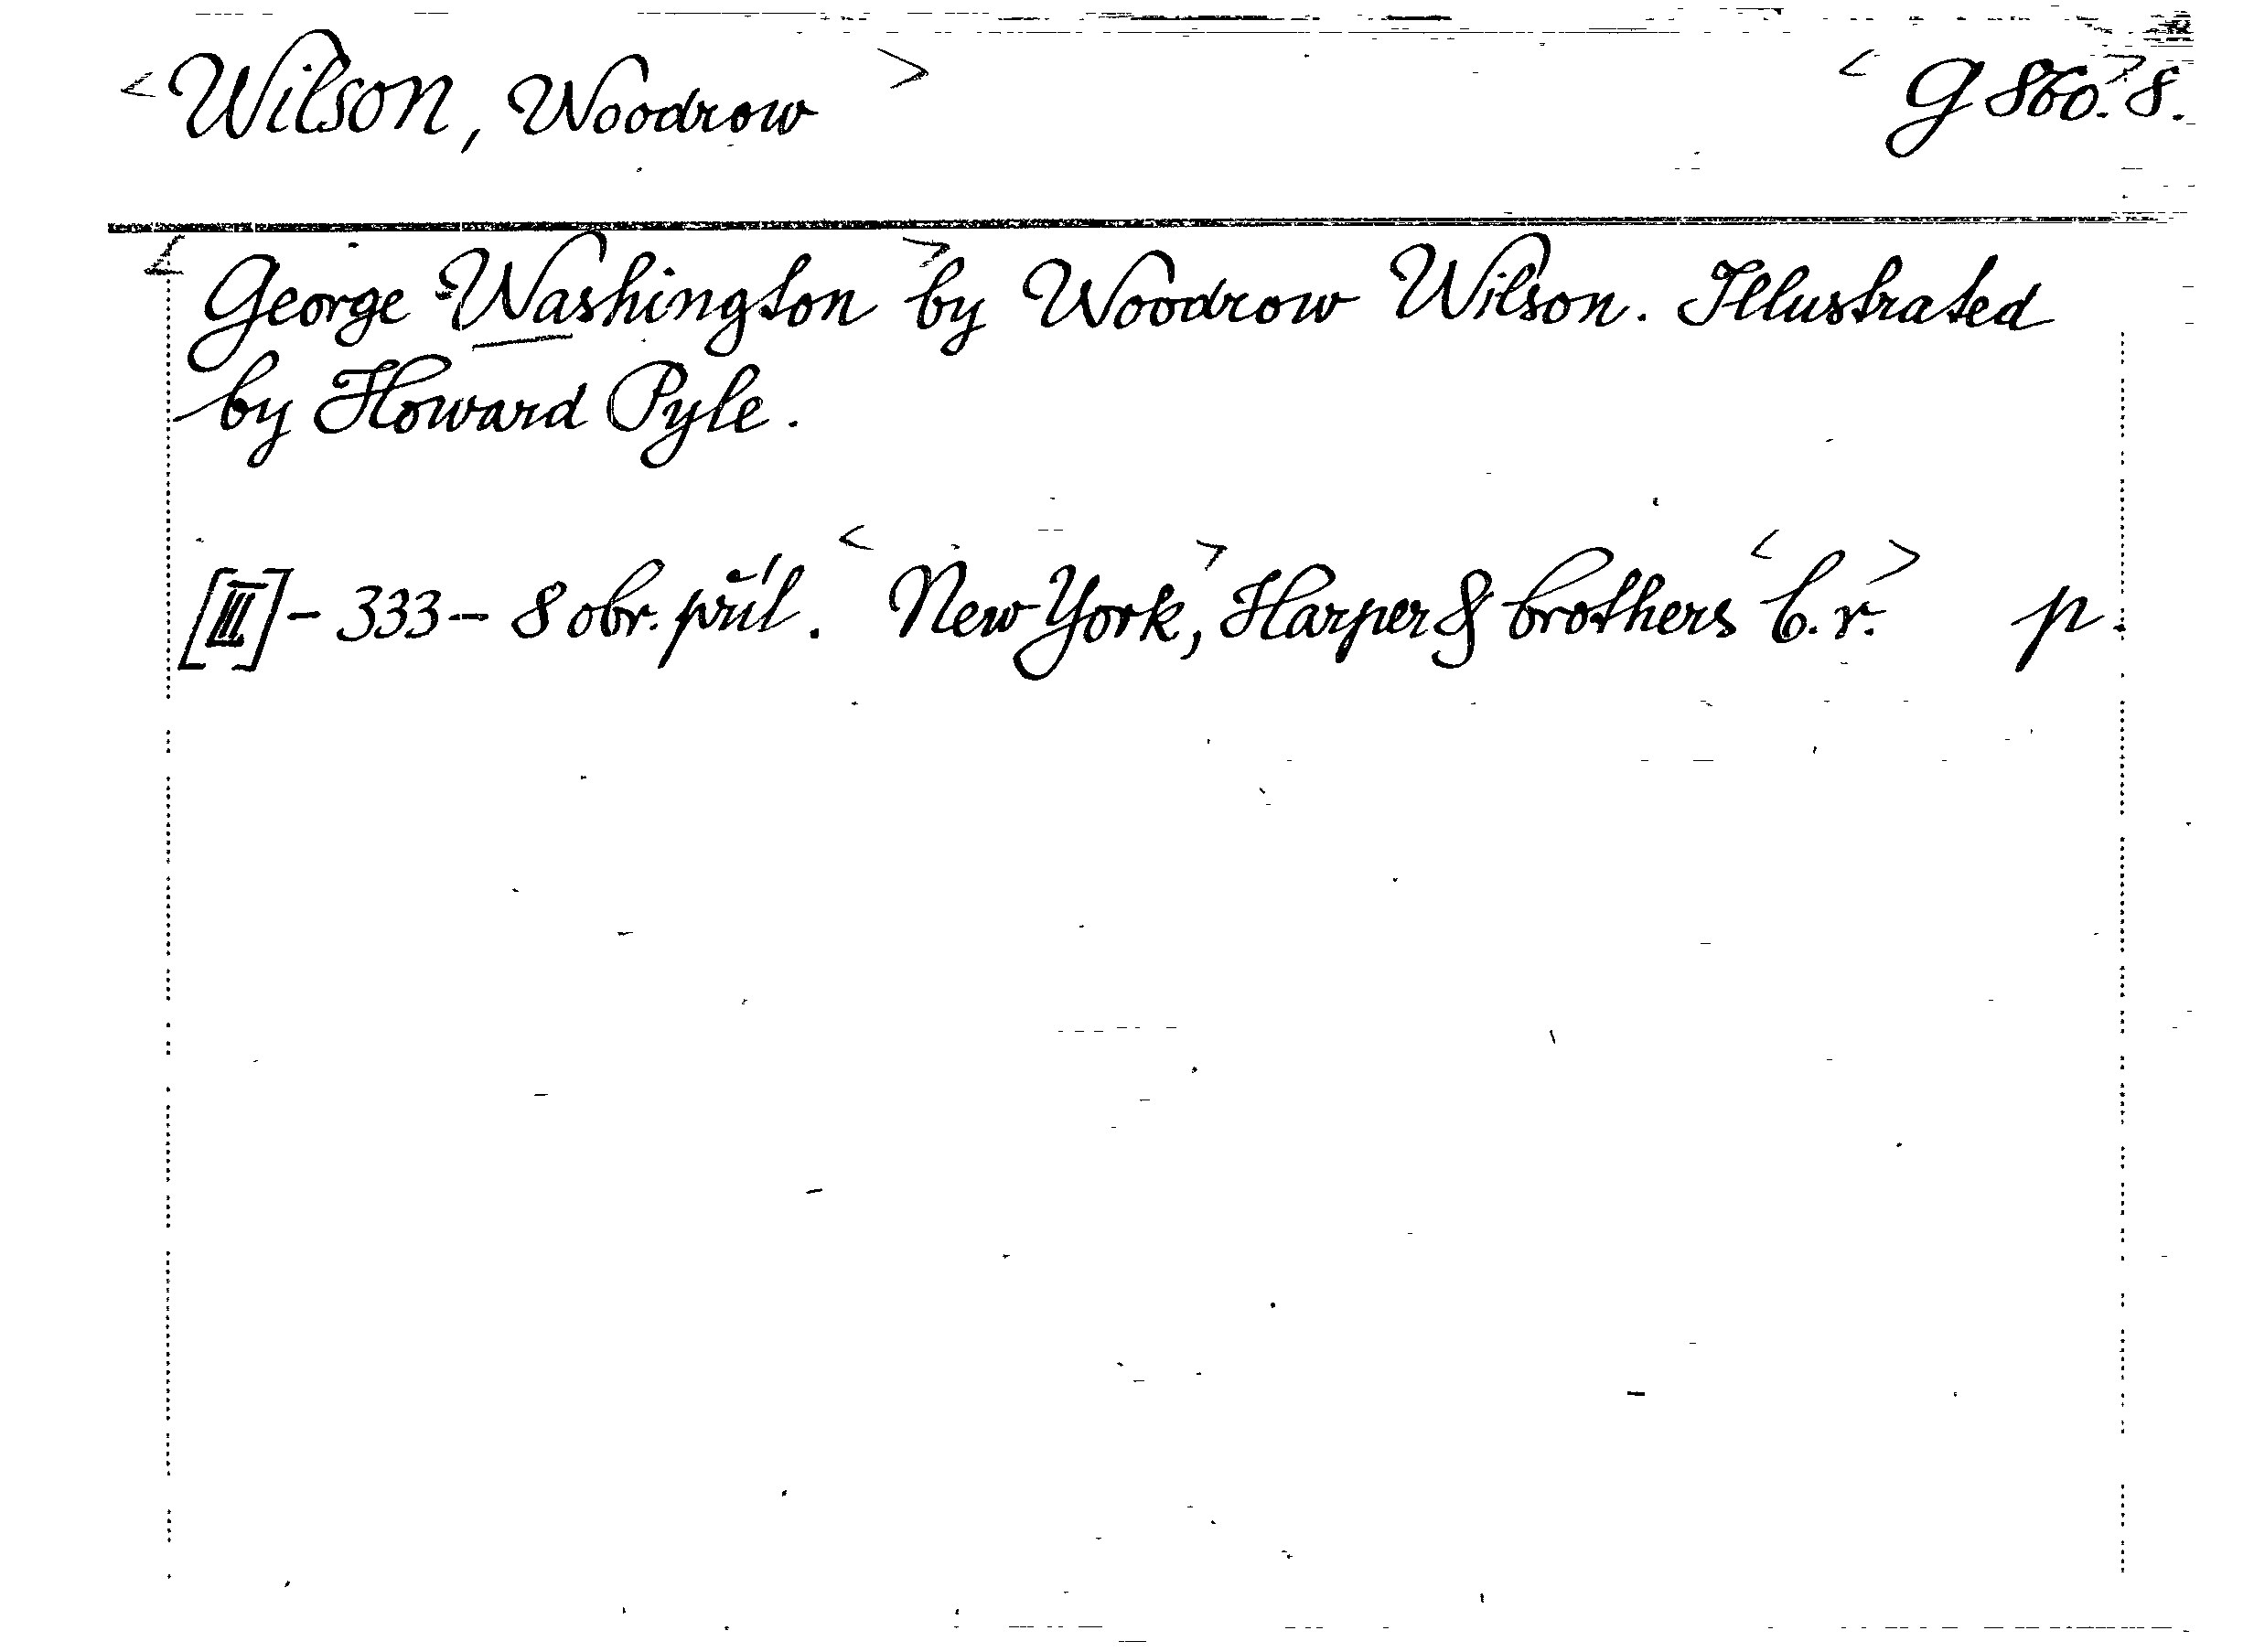 <Wilson, Woodrow> <G 860.>8.
<George Washington> by Woodrow Wilson. Illustrated
by Howard Pyle.
[III] - 333 - 8 obr. příl. <New York,> Harper & brothers <b. r.> p.